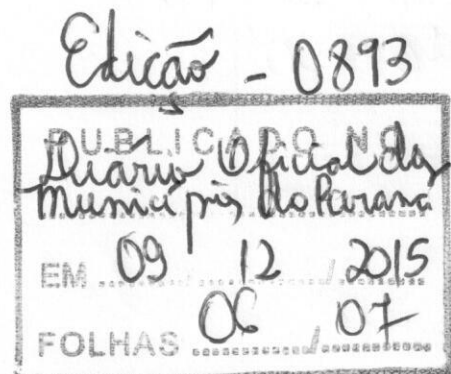 Edição - 0893
PUBLICADO NO
Diário Oficial dos
Municípios do Paraná
EM 09 / 12 / 2015
FOLHAS 06 / 07